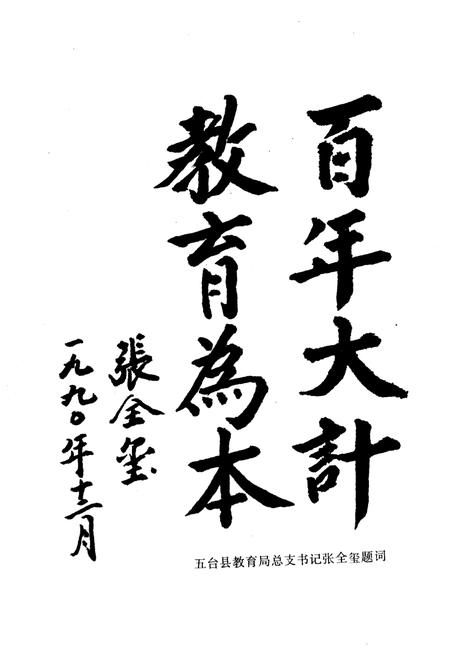 百年大計
教育為本
張全璽
一九九〇年十二月
五台县教育局总支书记张全玺题词